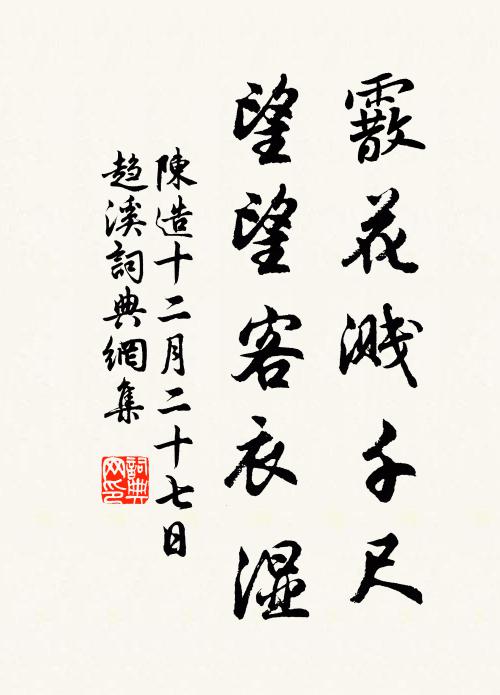 霰花濺千尺
望望客衣湿
陳造十二月二十七日
趋溪詞典網集
詞典网印